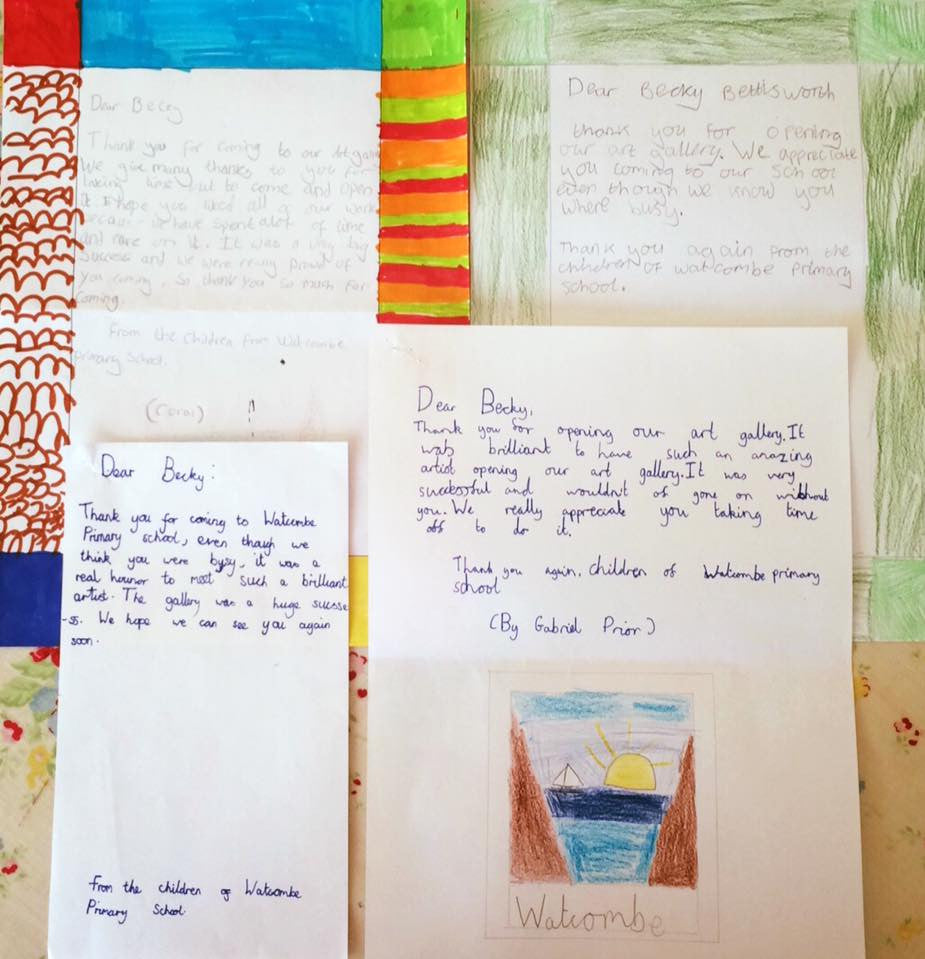 Dear Becky
Thank you for coming to our Art gallery
We give many thanks to you for
taking time out to come and open
it I hope you liked all of our work
because we have spent alot of time
and care on it. It was a very big
success and we were really proud of
you coming. So thank you so much for
coming.
From the children from Watcombe
primary School.
(Coral)
Dear Becky Bettisworth
thank you for opening
our art gallery. We appreciate
you coming to our school
even though we know you
where busy.
Thank you again from the
children of watcombe primary
school.
Dear Becky:
Thank you for coming to Watcombe
Primary school, even though we
think you were bysy, it was a
real hounor to meet such a brilliant
artist. The gallery was a huge succe
-ss. We hope we can see you again
soon.
from the children of Watcombe
Primary School.
Dear Becky,
Thank you for opening our art gallery. It
was brilliant to have such an amazing
artist opening our art gallery. It was very
successful and wouldn't of gone on without
you. We really appreciate you taking time
off to do it.
Thank you again, children of Watcombe primary
school
(By Gabriel Prior)
Watcombe